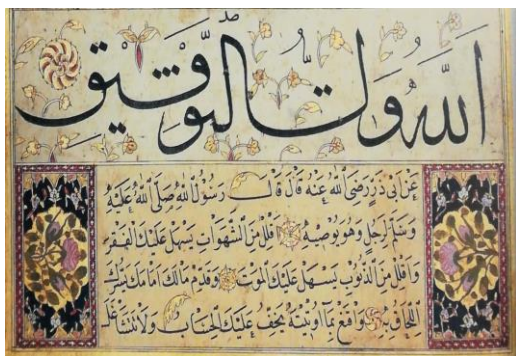 الله ولي التوفيق
عَنْ اَبِي ذَرٍّ رَضِيَ اللهُ عَنْهُ قَالَ قَالَ رَسُولُ اللهِ صَلَّى اللهُ عَلَيْهِ
وَسَلَّمَ لِرَجُلٍ وَهُوَ يُوصِيهِ اَقْلِلْ مِنَ الشَّهَوَاتِ يَسْهُلْ عَلَيْكَ الْفَقْرُ
وَاَقْلِلْ مِنَ الذُّنُوبِ يَسْهُلْ عَلَيْكَ الْمَوْتُ وَقَدِّمْ مَالَكَ اَمَامَكَ يَسُرُّكَ
اللِّحَاقُ بِهِ وَاقْنَعْ بِمَا اُوتِيتَهُ يَخِفَّ عَلَيْكَ الْحِسَابُ وَلَا تَتَشَاغَلْ